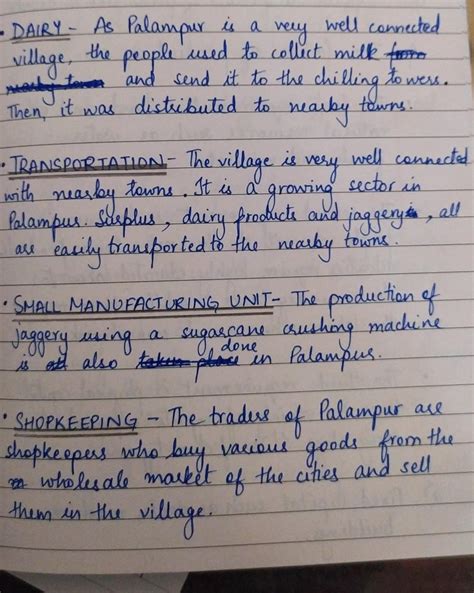 • DAIRY - As Palampur is a very well connected
village, the people used to collect milk from
nearby town and send it to the chilling towers.
Then, it was distributed to nearby towns.
• TRANSPORTATION - The village is very well connected
with nearby towns. It is a growing sector in
Palampur. Surplus, dairy products and jaggery, all
are easily transported to the nearby towns.
• SMALL MANUFACTURING UNIT - The production of
jaggery using a sugarcane crushing machine
is also taken place done in Palampur.
• SHOPKEEPING - The traders of Palampur are
shopkeepers who buy various goods from the
wholesale market of the cities and sell
them in the village.